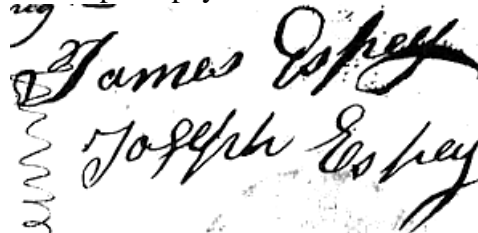 James Espey
Joseph Espey